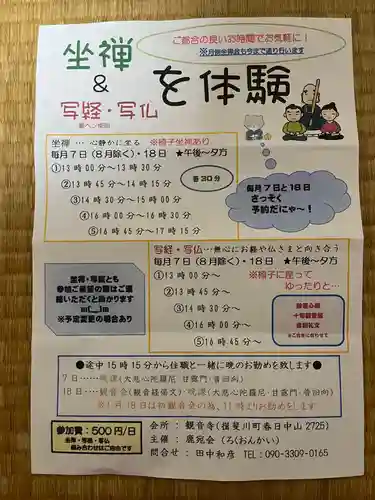 ご都合の良いお時間でお気軽に！
※月例坐禅会も今まで通り行います
坐禅
&
写経・写仏
を体験
坐禅 … 心静かに坐る ※椅子坐禅あり
毎月7日（8月除く）・18日 ★午後～夕方
①13時00分～13時30分
②13時45分～14時15分
③14時30分～15時00分
④16時00分～16時30分
⑤16時45分～17時15分
各30分
毎月7日と18日
さっそく
予約だにゃ～！
写経・写仏…無心にお経や仏さまと向き合う
毎月7日（8月除く）・18日 ★午後～夕方
①13時00分～ ※椅子に座って
ゆったりと…
②13時45分～
③14時30分～
④16時00分～
⑤16時45分～
坐禅・写経とも
参加ご希望の際はご連
絡いただくと助かります
m(__)m
※予定変更の場合あり
般若心経
十句観音経
●途中15時15分から住職と一緒に晩のお勤めを致します●
7日……晩課（大悲心陀羅尼・甘露門・普回向）
18日……観音会（観音経偈文）・晩課（大悲心陀羅尼・甘露門・普回向）
※1月18日は初観音会の為、11時よりお勤めします
参加費：500円/日
坐禅・写経・写仏
組み合わせはご自由です
会所 ： 観音寺（揖斐川町春日中山2725）
主催 ： 鹿苑会（ろくおんかい）
問合せ ： 田中和彦 TEL：090-3309-0165